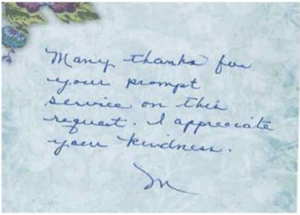 Many thanks for
your prompt
service on this
request. I appreciate
your kindness.